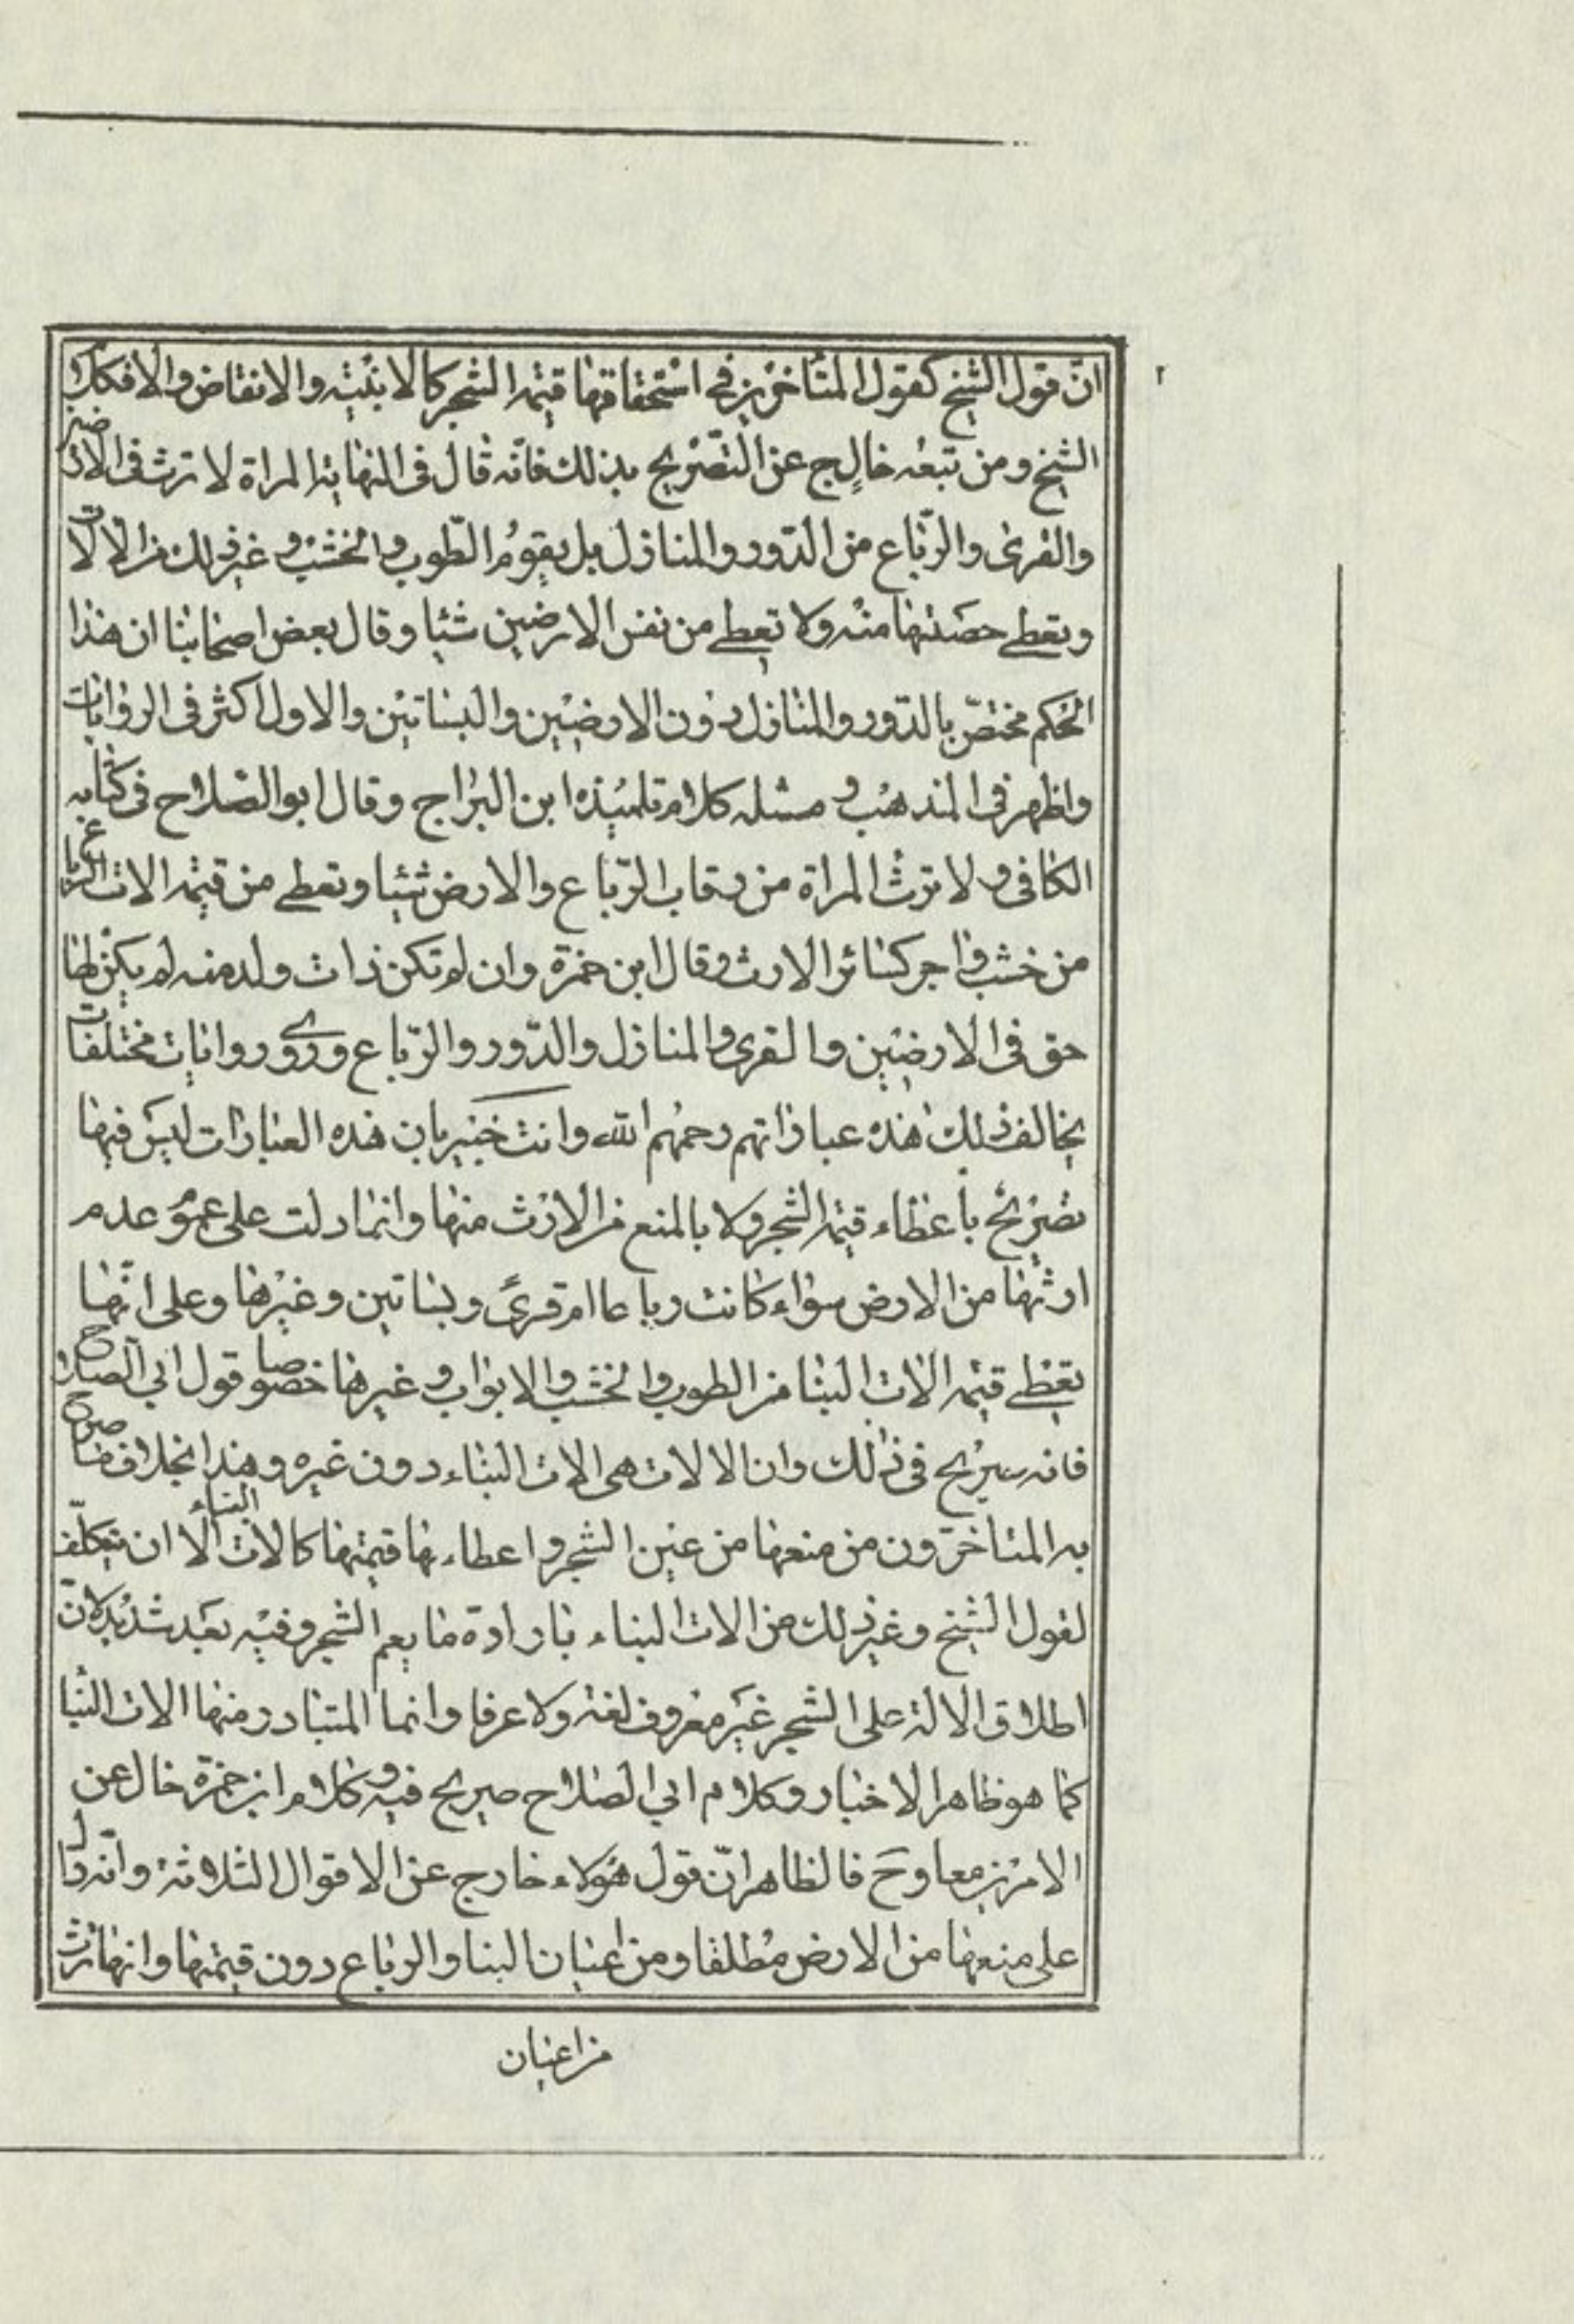 انّ قول الشيخ كقول المتأخرين في استحقاقها قيمة الشجر كالابنية والانقاض والا فكلام
الشيخ ومن تبعه خالٍ ج عن التصريح بذلك فانّه قال فى النهاية المراة لا ترث فى الارضين
والقرى والرّباع من الدّور والمنازل بل يقوم الطّوب والخشب وغير ذلك من الالات
وتعطى حصّتها منه ولا تعطى من نفس الارضين شيئا وقال بعض اصحابنا ان هذا
الحكم مختصّ بالدّور والمنازل دون الارضين والبساتين والاول اكثر فى الروايات
واظهر فى المذهب ومثله كلام تلميذه ابن البراج وقال ابو الصّلاح فى كتابه
الكافى ولا ترث المراة من رقاب الرّباع والارض شيئا وتعطى من قيمة الات الرباع
من خشب واجر كسائر الارث وقال ابن حمزة وان لم تكن ذات ولد منه لم يكن لها
حق فى الارضين والقرى والمنازل والدّور والرّباع وروى روايات مختلفات
بخالف ذلك هذه عباراتهم رحمهم الله وانت خبير بان هذه العبارات ليس فيها
تصريح باعطاء قيمة الشجر ولا بالمنع من الارث منها وانما دلت على عموم عدم
ارثها من الارض سواء كانت رباعا ام قرىً وبساتين وغيرها وعلى انّها
تعطى قيمة الات البنا من الطوب والخشب والابواب وغيرها خصوصا قول ابي الصلاح
فانه صريح فى ذلك وان الالات هى الات البناء دون غيره وهذا بخلاف ما صرح
به المتاخرون من منعها من عين الشجر واعطاءها قيمتها كالات البناء الا ان يتكلّف
لقول الشيخ وغير ذلك من الات البناء بارادة ما يعم الشجر وفيه بعد شديد لانّ
اطلاق الالة على الشجر غير معروف لغة ولا عرفا وانما المتبادر منها الات البنا
كما هو ظاهر الاخبار وكلام ابي الصلاح صريح فيه وكلام ابن حمزة خال عن
الامرين معا وح فالظاهر انّ قول هؤلاء خارج عن الاقوال الثلاثة وانّه دال
على منعها من الارض مطلقا ومن اعيان البنا والرباع دون قيمتها وانها ترث
من اعيان